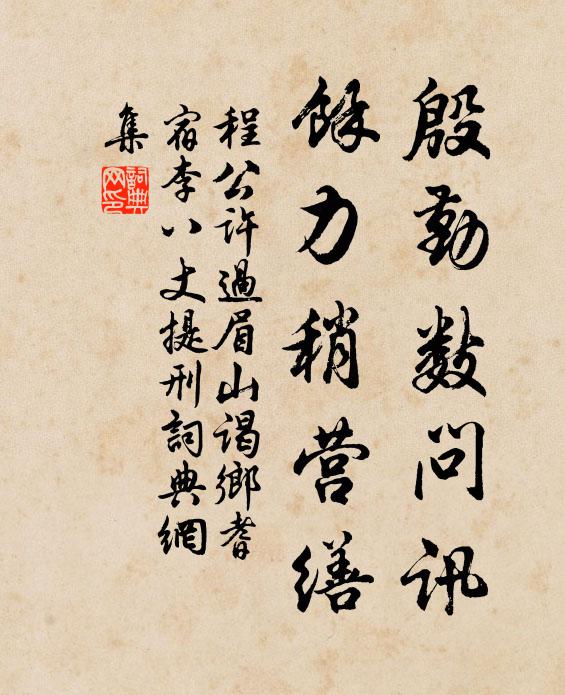 殷勤数问讯
馀力稍营缮
程公许過眉山谒鄉耆
宿李八丈提刑詞典網
集
詞典網印